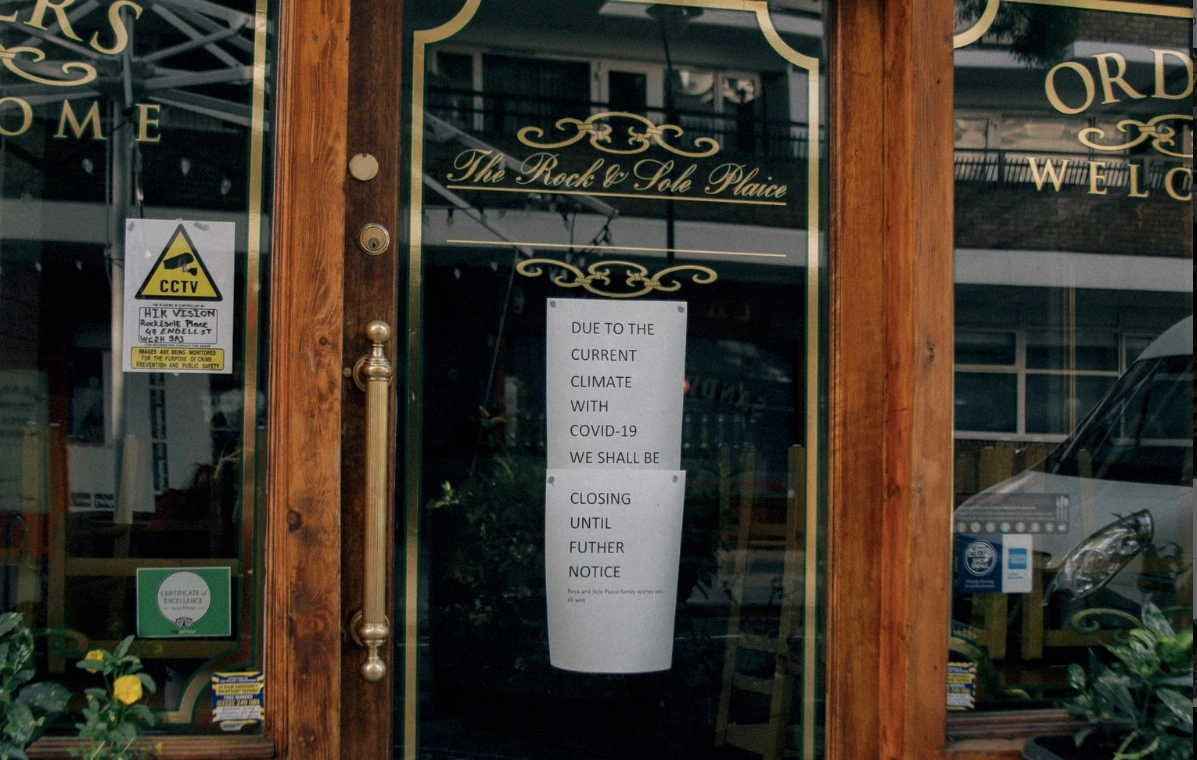 ERS
OME
CCTV
THE SCHEME IS CONTROLLED BY
HIK VISION
Rock&Sole Place
47 ENDELL ST
WC2H 9AJ
FOR INFORMATION CONTACT THE ABOVE
IMAGES ARE BEING MONITORED
FOR THE PURPOSE OF CRIME
PREVENTION AND PUBLIC SAFETY
CERTIFICATE of
EXCELLENCE
The Rock & Sole Plaice
DUE TO THE
CURRENT
CLIMATE
WITH
COVID-19
WE SHALL BE
CLOSING
UNTIL
FUTHER
NOTICE
Rock and Sole Plaice family wishes you
all well
ORD
WELC
SHOP
SMALL